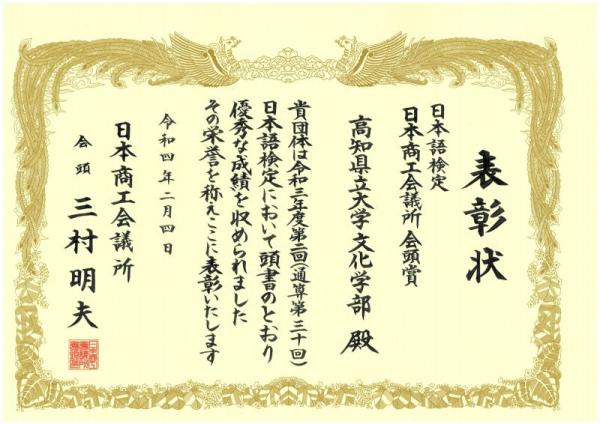 表彰状
日本語検定
日本商工会議所会頭賞
高知県立大学文化学部 殿
貴団体は令和三年度第二回(通算第三十回)
日本語検定において頭書のとおり
優秀な成績を収められました
その栄誉を称えここに表彰いたします
令和四年二月四日
日本商工会議所
会頭 三村明夫